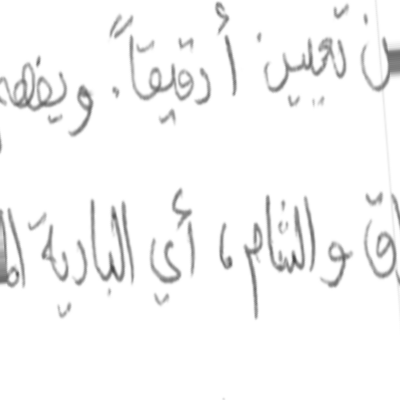 تعيين أ دقيقاً. ويظهر
ق والشام، أي البادية